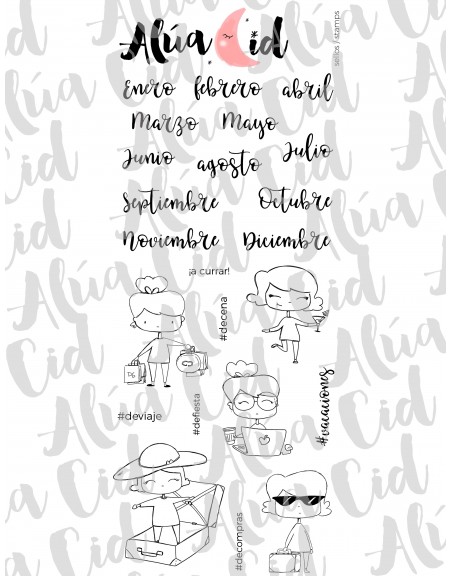 Alúa Cid
sellos / stamps
Enero febrero abril
Marzo Mayo
Junio agosto Julio
Septiembre Octubre
Noviembre Diciembre
¡a currar!
#decena
#deviaje
#defiesta
#vacaciones
#decompras